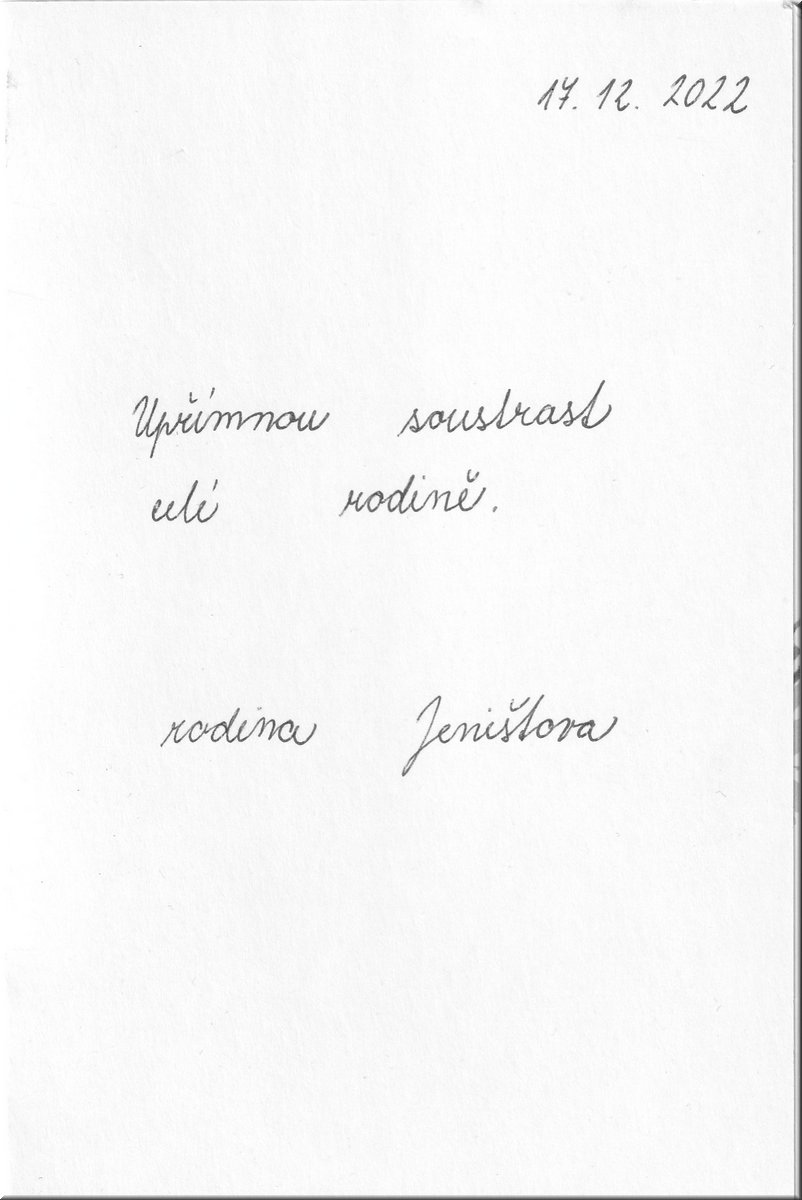 17. 12. 2022
Upřímnou soustrast
celé rodině.
rodina Jeništova